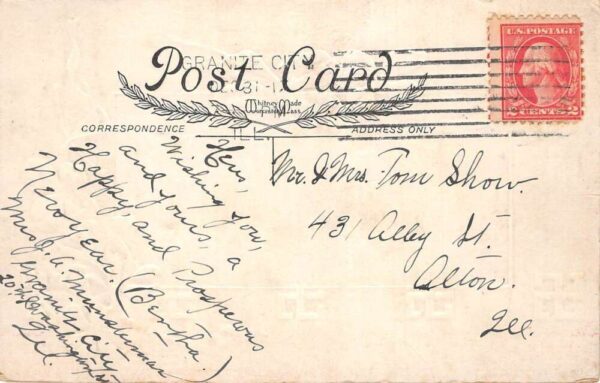 GRANITE CITY
Post Card
31-1
Whitney Made
Worcester, Mass.
CORRESPONDENCE
ILL.
ADDRESS ONLY
U.S. POSTAGE
2 CENTS 2
Wishing you,
and yours, a
Happy, and Prosperous
New Year. (Bertha)
Mrs. J. A.
Granite City
Ill.
Mr. & Mrs. Tom Show.
431 Alley St.
Alton.
Ill.